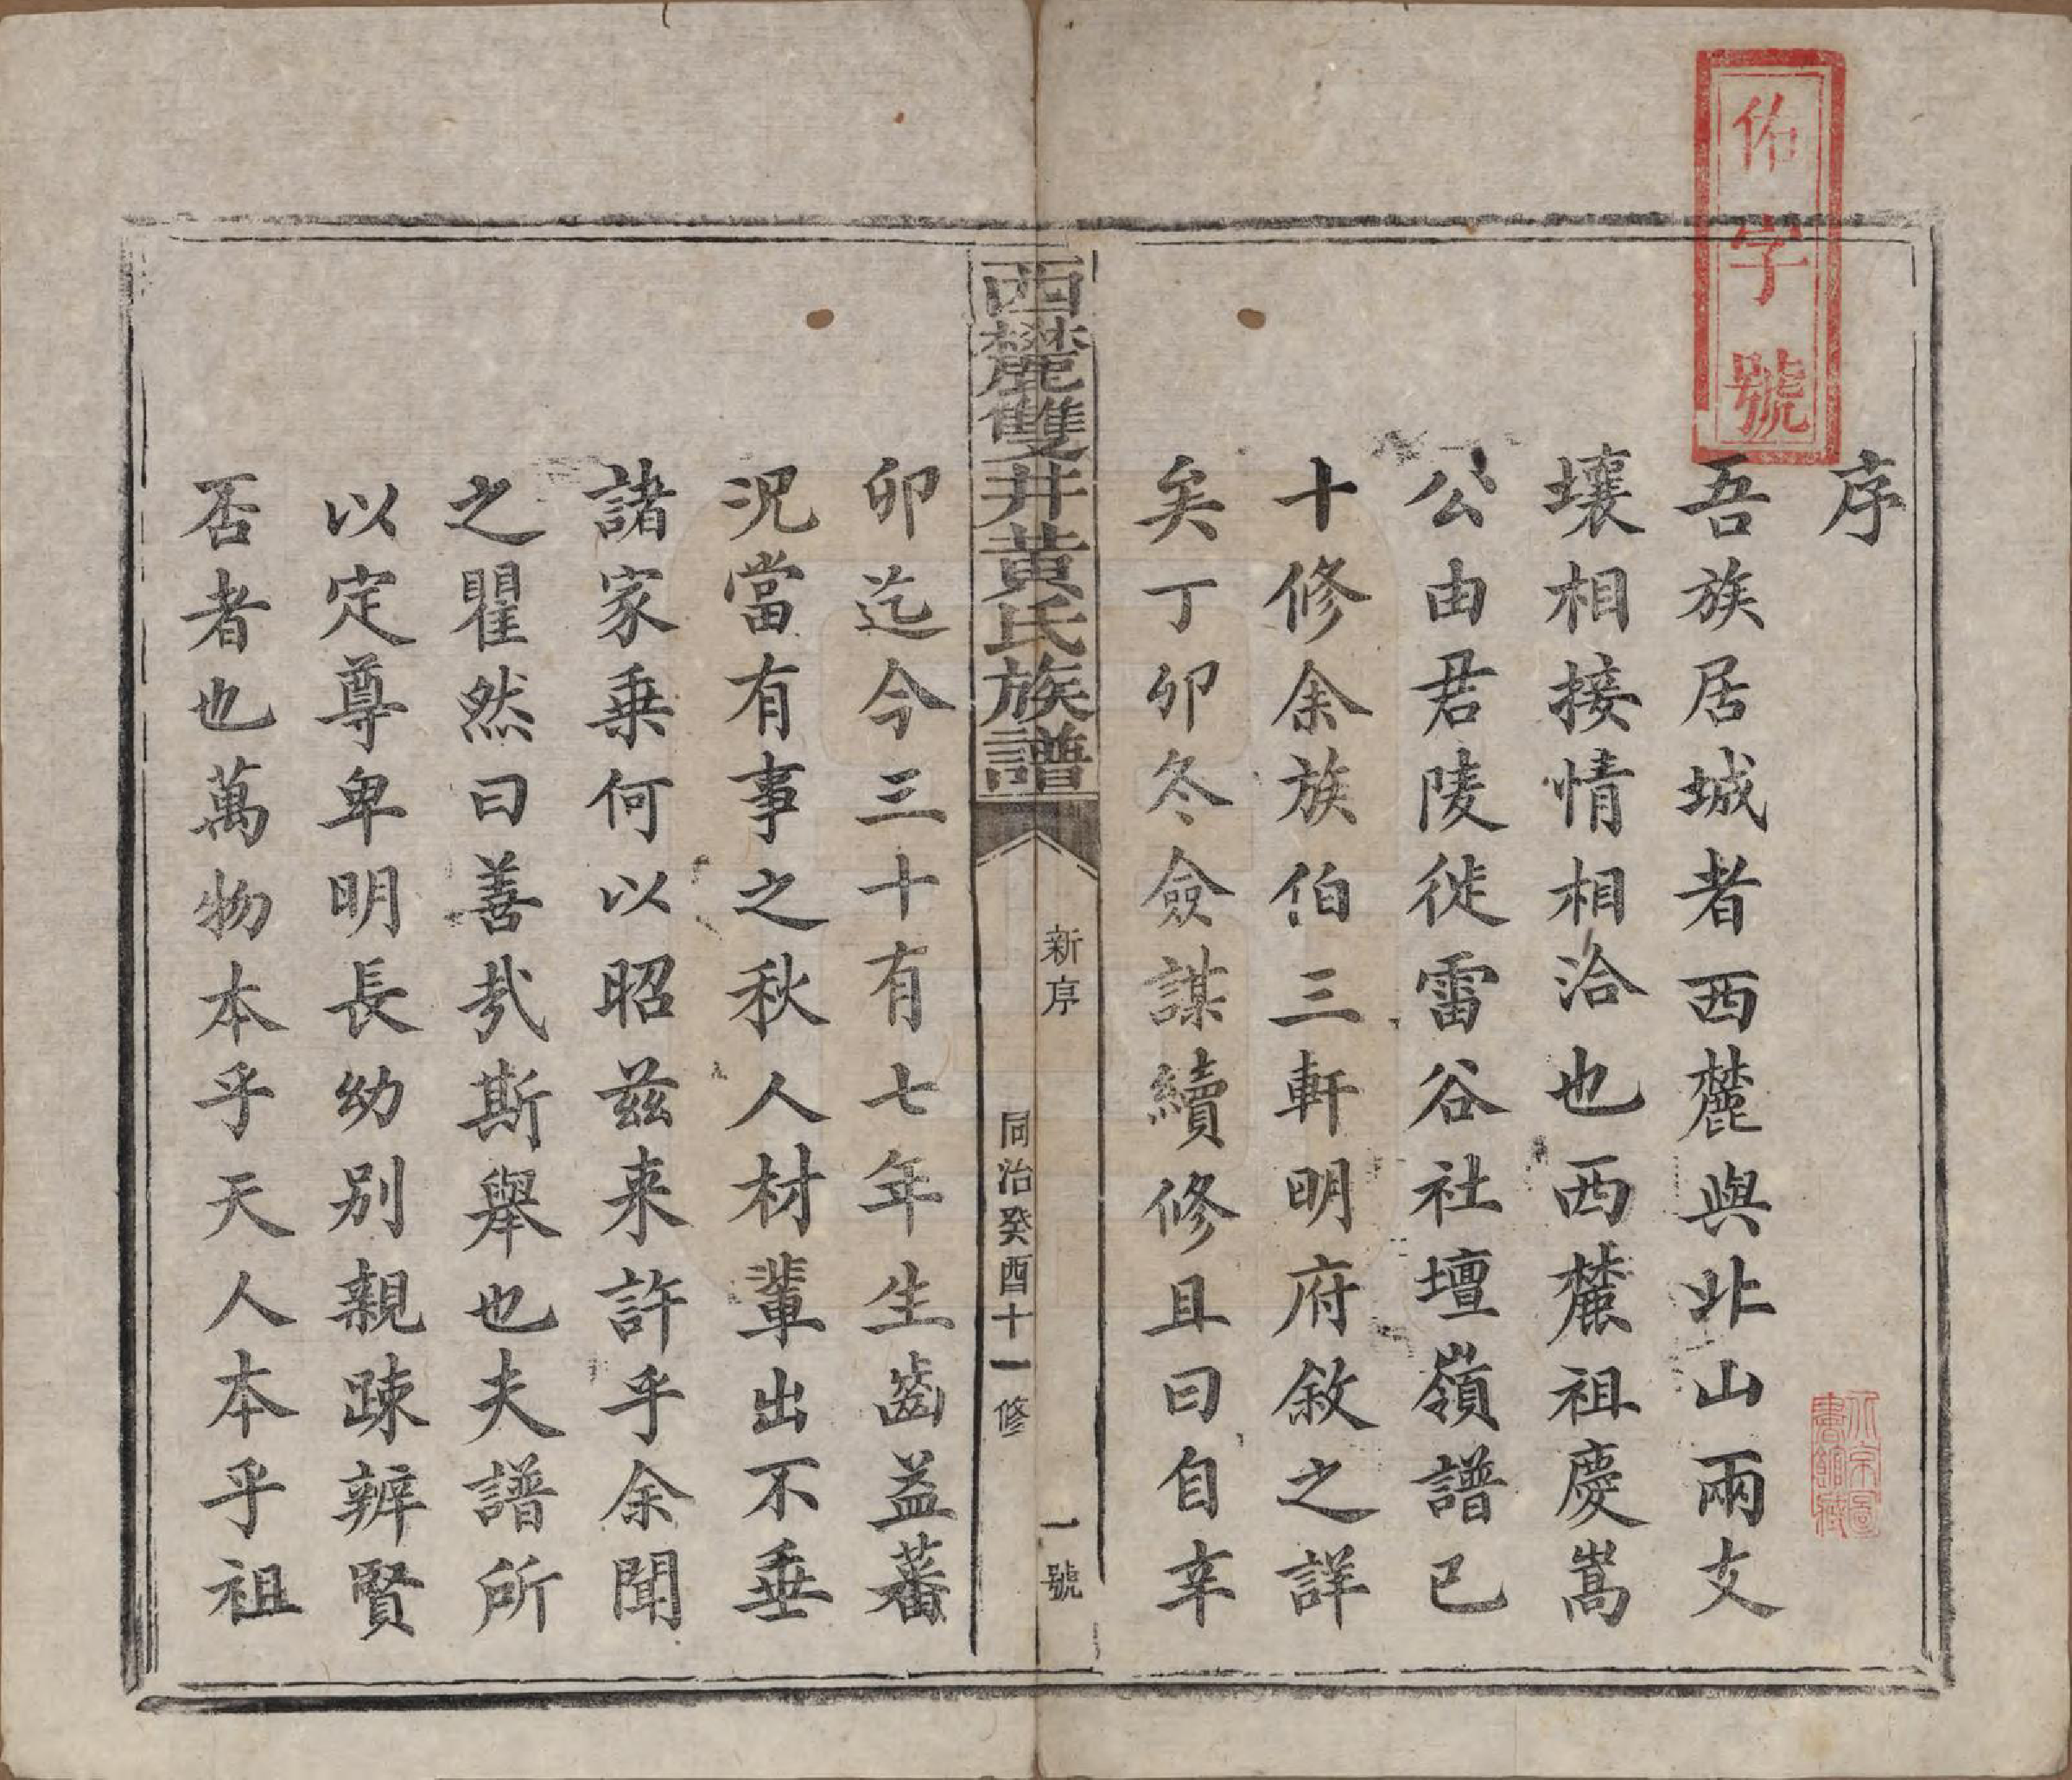 佑字號
序
吾族居城者西麓與北山兩支
壤相接情相洽也西麓祖慶嵩
公由君陵徙雷谷社壇嶺譜已
十修余族伯三軒明府敘之詳
矣丁卯冬僉謀續修且曰自辛
西麓雙井黃氏族譜
新序
一號
同治癸酉十一修
卯迄今三十有七年生齒益蕃
況當有事之秋人材輩出不垂
諸家乘何以昭兹来許乎余聞
之瞿然曰善哉斯舉也夫譜所
以定尊卑明長幼別親疎辨賢
否者也萬物本乎天人本乎祖